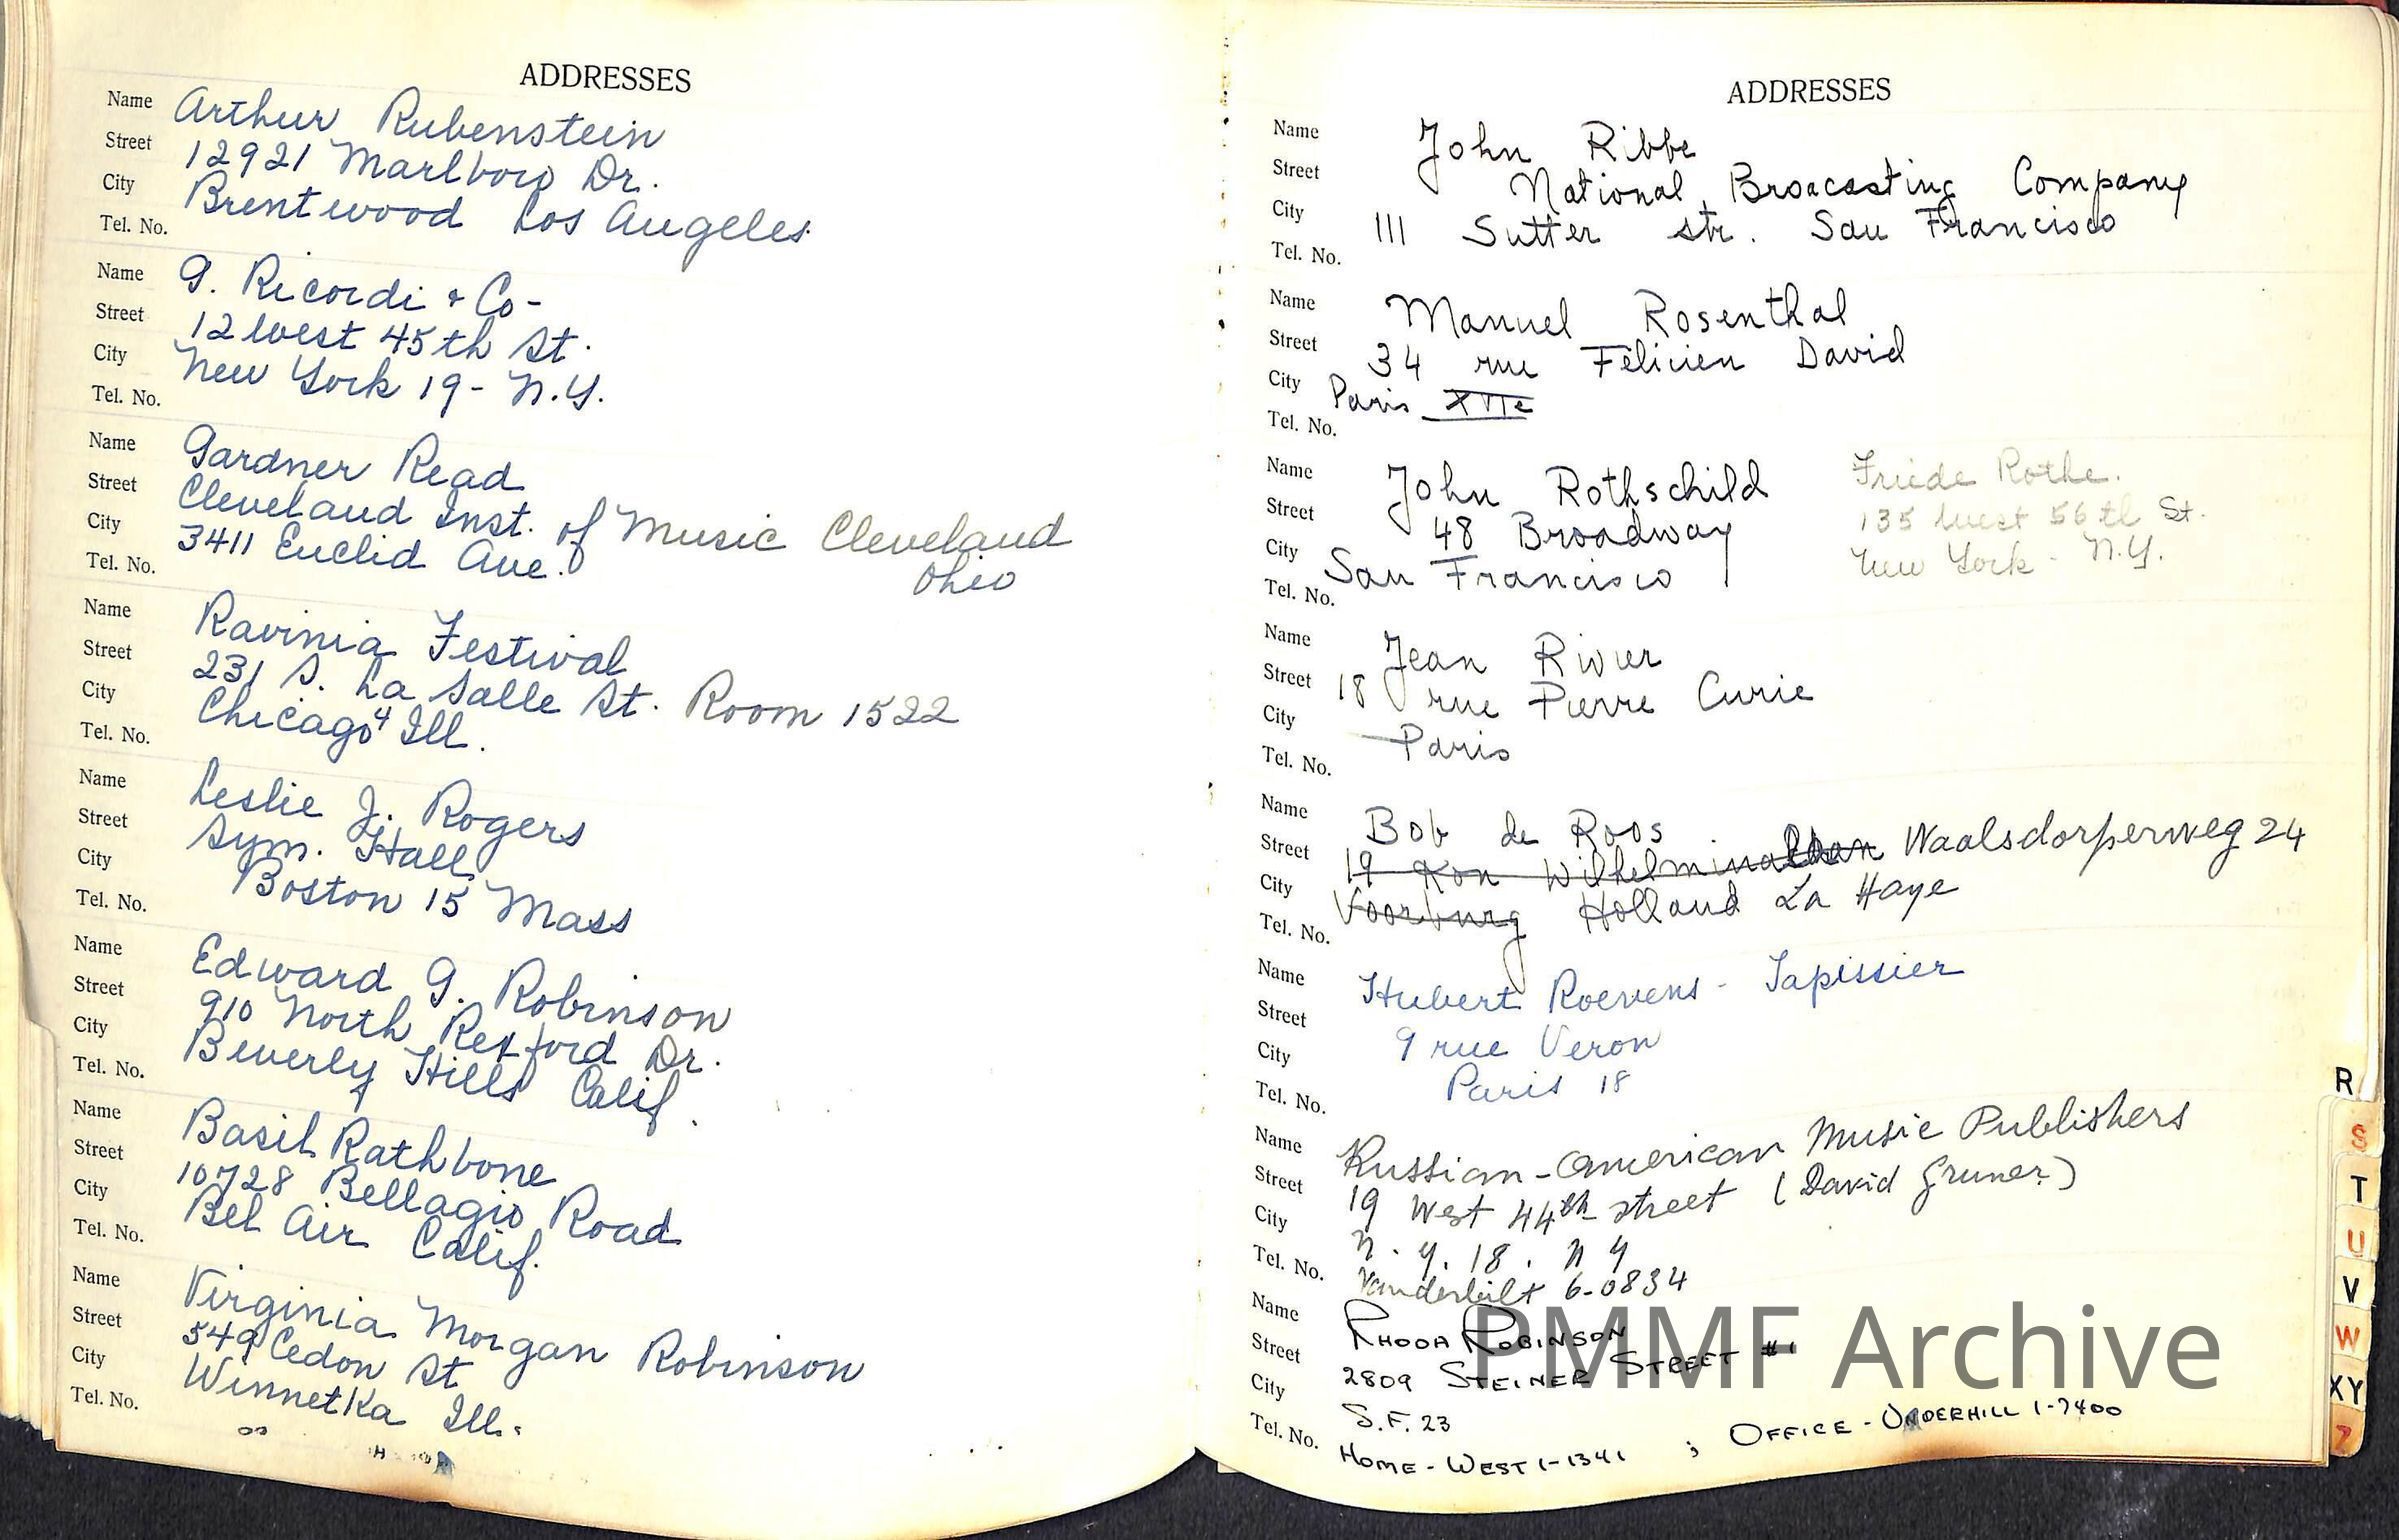 ADDRESSES
Name Arthur Rubenstein
Street 12921 Marlboro Dr.
City Brentwood Los Angeles
Tel. No.
Name G. Ricordi + Co-
Street 12 West 45th St.
City New York 19 - N.Y.
Tel. No.
Name Gardner Read
Street Cleveland Inst. of Music Cleveland
City 3411 Euclid Ave. Ohio
Tel. No.
Name Ravinia Festival
Street 231 S. La Salle St. Room 1522
City Chicago 4 Ill.
Tel. No.
Name Leslie J. Rogers
Street Sym. Hall
City Boston 15 Mass
Tel. No.
Name Edward G. Robinson
Street 910 North Rexford Dr.
City Beverly Hills Calif.
Tel. No.
Name Basil Rathbone
Street 10728 Bellagio Road
City Bel Air Calif.
Tel. No.
Name Virginia Morgan Robinson
Street 549 Cedon St
City Winnetka Ill.
Tel. No.
ADDRESSES
Name John Ribbe
Street National Broacasting Company
City 111 Sutter str. San Francisco
Tel. No.
Name Manuel Rosenthal
Street 34 rue Felicien David
City Paris XVIe
Tel. No.
Name John Rothschild
Street 48 Broadway
City San Francisco
Tel. No.
Friede Rothe.
135 West 56th St.
New York - N.Y.
Name Jean Rivier
Street 18 rue Pierre Curie
City Paris
Tel. No.
Name Bob de Roos
Street 19 Kon Wilhelminalaan Waalsdorperweg 24
City Voorburg Holland La Haye
Tel. No.
Name Hubert Roevens - Tapissier
Street 9 rue Veron
City Paris 18
Tel. No.
Name Russian-American Music Publishers
Street 19 West 44th street (David Gruner)
City N.Y. 18. N Y
Tel. No. Vanderbilt 6-0834
Name RHODA ROBINSON
Street 2809 STEINER STREET #1
City S.F. 23
Tel. No. HOME - WEST 1-1341 ; OFFICE - UNDERHILL 1-7400
R
S
T
U
V
W
XY
Z
PMMF Archive